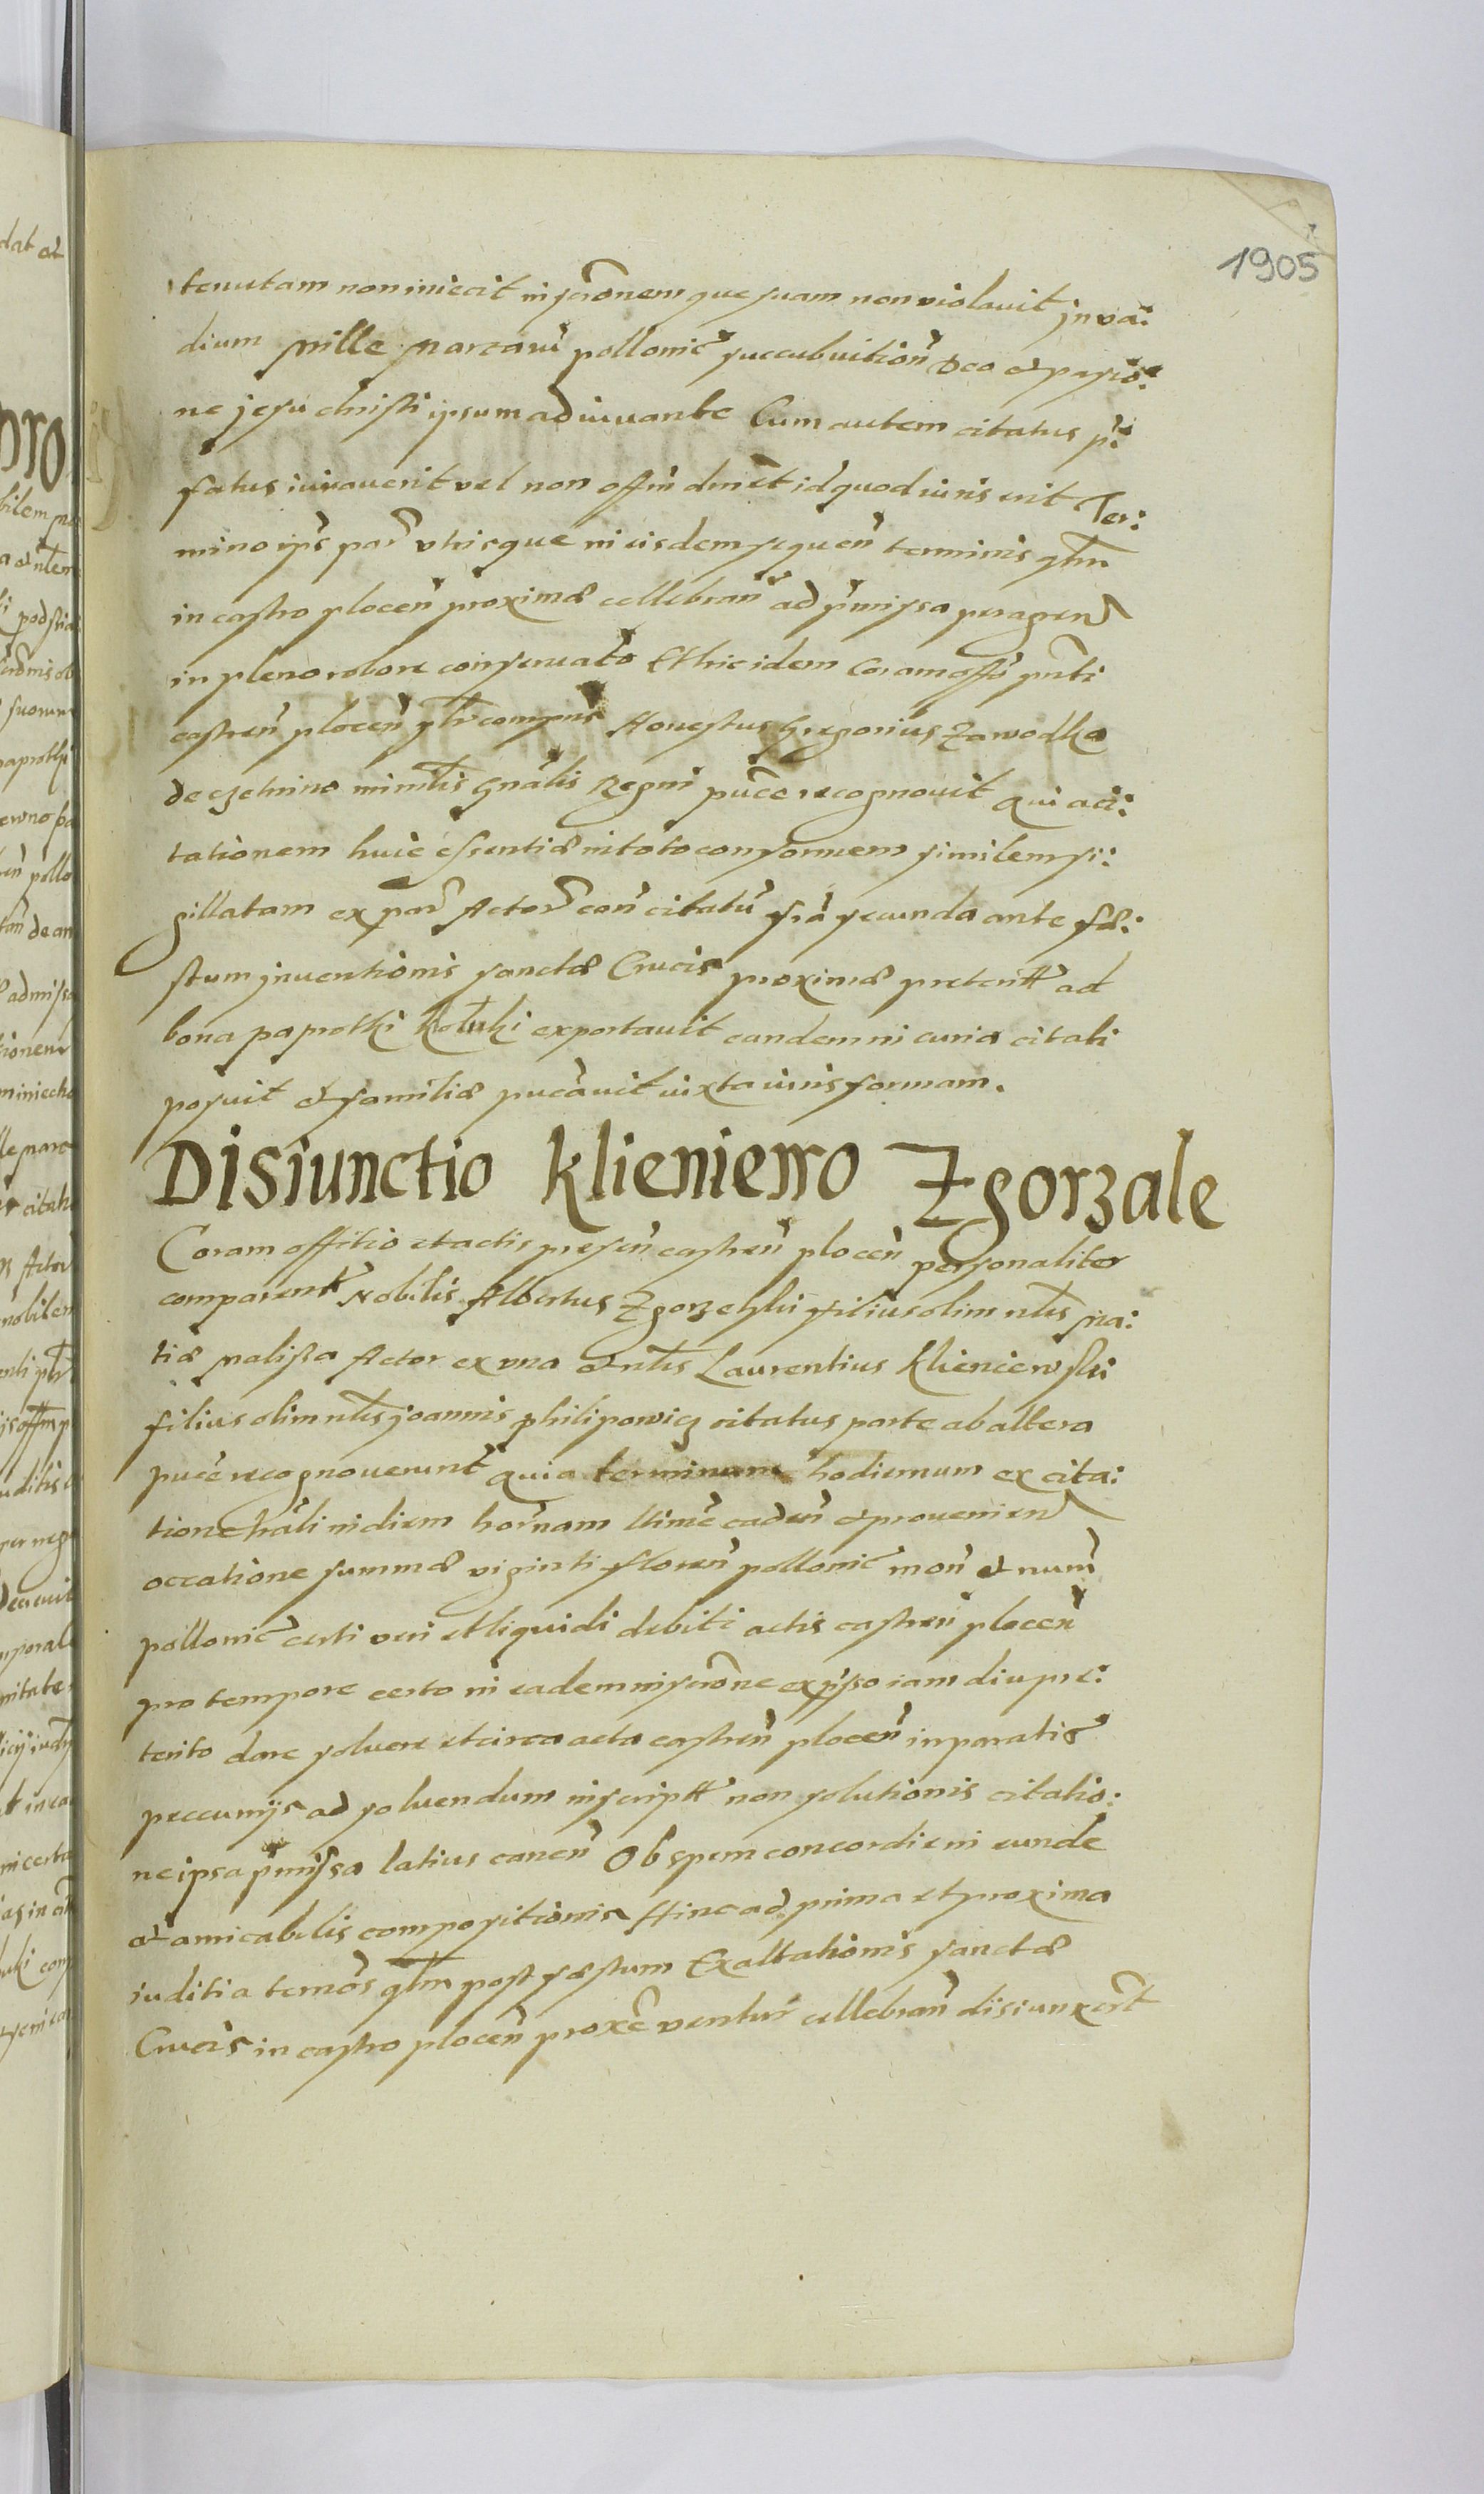 1905
tenutam non iniecit inscrōnem que suam non violavit in va:
dium Mille Marcarū pollonic̄ succubuit iōn̄ Deo et passio:
ne jesu christi ipsum adiuuante Cum autem citatus p̄:
fatus iurauerit vel non offm̄ dm̄et id quod iuris erit Ter:
mino ips̄ par̄ vtrisque in iisdem sequen̄ terminis qlm̄
in castro plocen̄ proximæ cellebran̄ ad p̄missa peragen̄
in pleno robore conseruato Et hic idem Coram offō pn̄ti
castren̄ plocen̄ plr̄ compns̄ Honestus Gregorius Zawodka
de czehnino minrlis Gnālis Regni puc̄e recognovit Qui a ci:
tationem huic essentiæ in toto conformem similem si:
gillatam ex par̄ Actor̄ con̄ citatū fr̄a secunda ante fæ:
stum jnuentionis sanctæ Crucis proximæ preterit̄ ad
bona paprotki koluki exportauit eandem in curia citati
posuit et familiæ pucāvit iuxta iuris formam.
Disiunctio Klieniewo Zgorzale
Coram offitio et actis presen̄ castren̄ plocen̄ personaliter
comparent̄ Nobilis Albertus Zgorzelski filius olim nlis Ma:
tiæ Malissa Actor ex vna et nlis Laurentius Klieniewski
filius olim nlis joannis philipowicz citatus parte ab altera
puc̄e recognouerunt̄ Quia terminum hodiernum ex cita:
tione trāli in diem hor̄nam llime caden̄ et prouenien̄
occatione summæ viginti floren̄ pollonic̄ mon̄ et num̄
pollonic̄ certi veri et liquidi debiti actis castren̄ plocen̄
pro tempore certo in eadem inscrōne expsso iam diu pre:
terito dare soluere et circa acta castren̄ plocen̄ in paratis
peccunijs ad soluendum inscript̄ non solutionis citatio:
ne ipsa p̄missa latius canen̄ Ob spem concordie in eunde
et amicabilis compositionis Hinc ad prima et proxima
iuditia termōs qlm̄ post festum Exaltationis sanctæ
Crucis in castro plocen̄ proxe ventur̄ cellebran̄ disiunxert̄